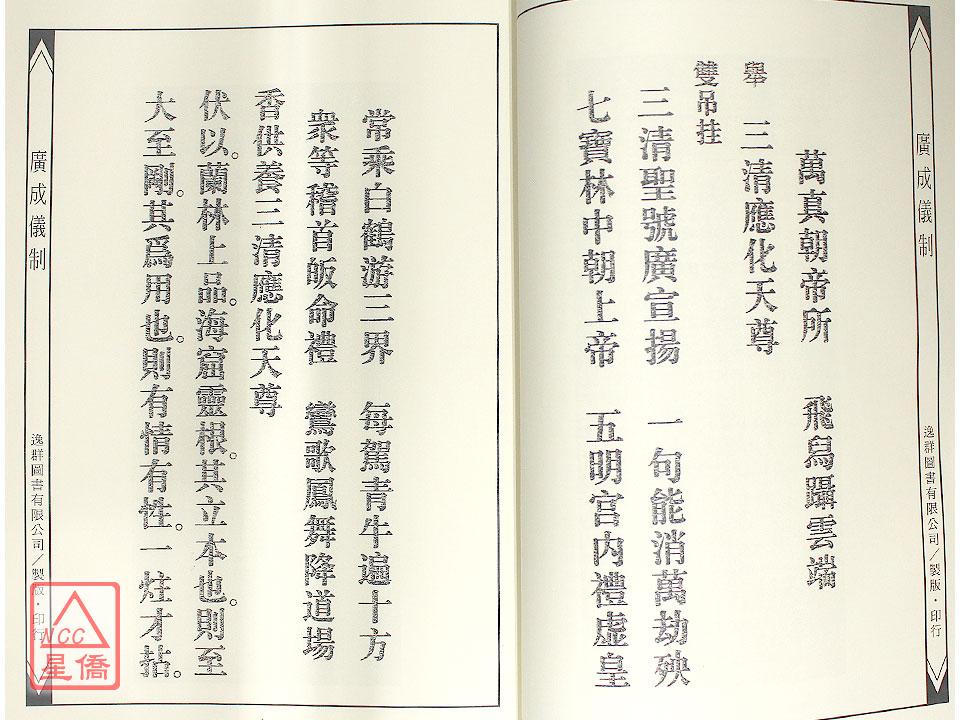 廣成儀制
逸群圖書有限公司／製版・印行
萬真朝帝所　飛舄躡雲端
舉　三清應化天尊
雙吊挂
三清聖號廣宣揚　一句能消萬劫殃
七寶林中朝上帝　五明宮內禮虛皇
常乘白鶴游三界　每駕青牛遍十方
衆等稽首皈命禮　鸞歌鳳舞降道場
香供養三清應化天尊
伏以。蘭林上品。海窟靈根。其立本也。則至
大至剛。其爲用也。則有情有性。一炷才拈。
廣成儀制
逸群圖書有限公司／製版・印行
NCC
星僑